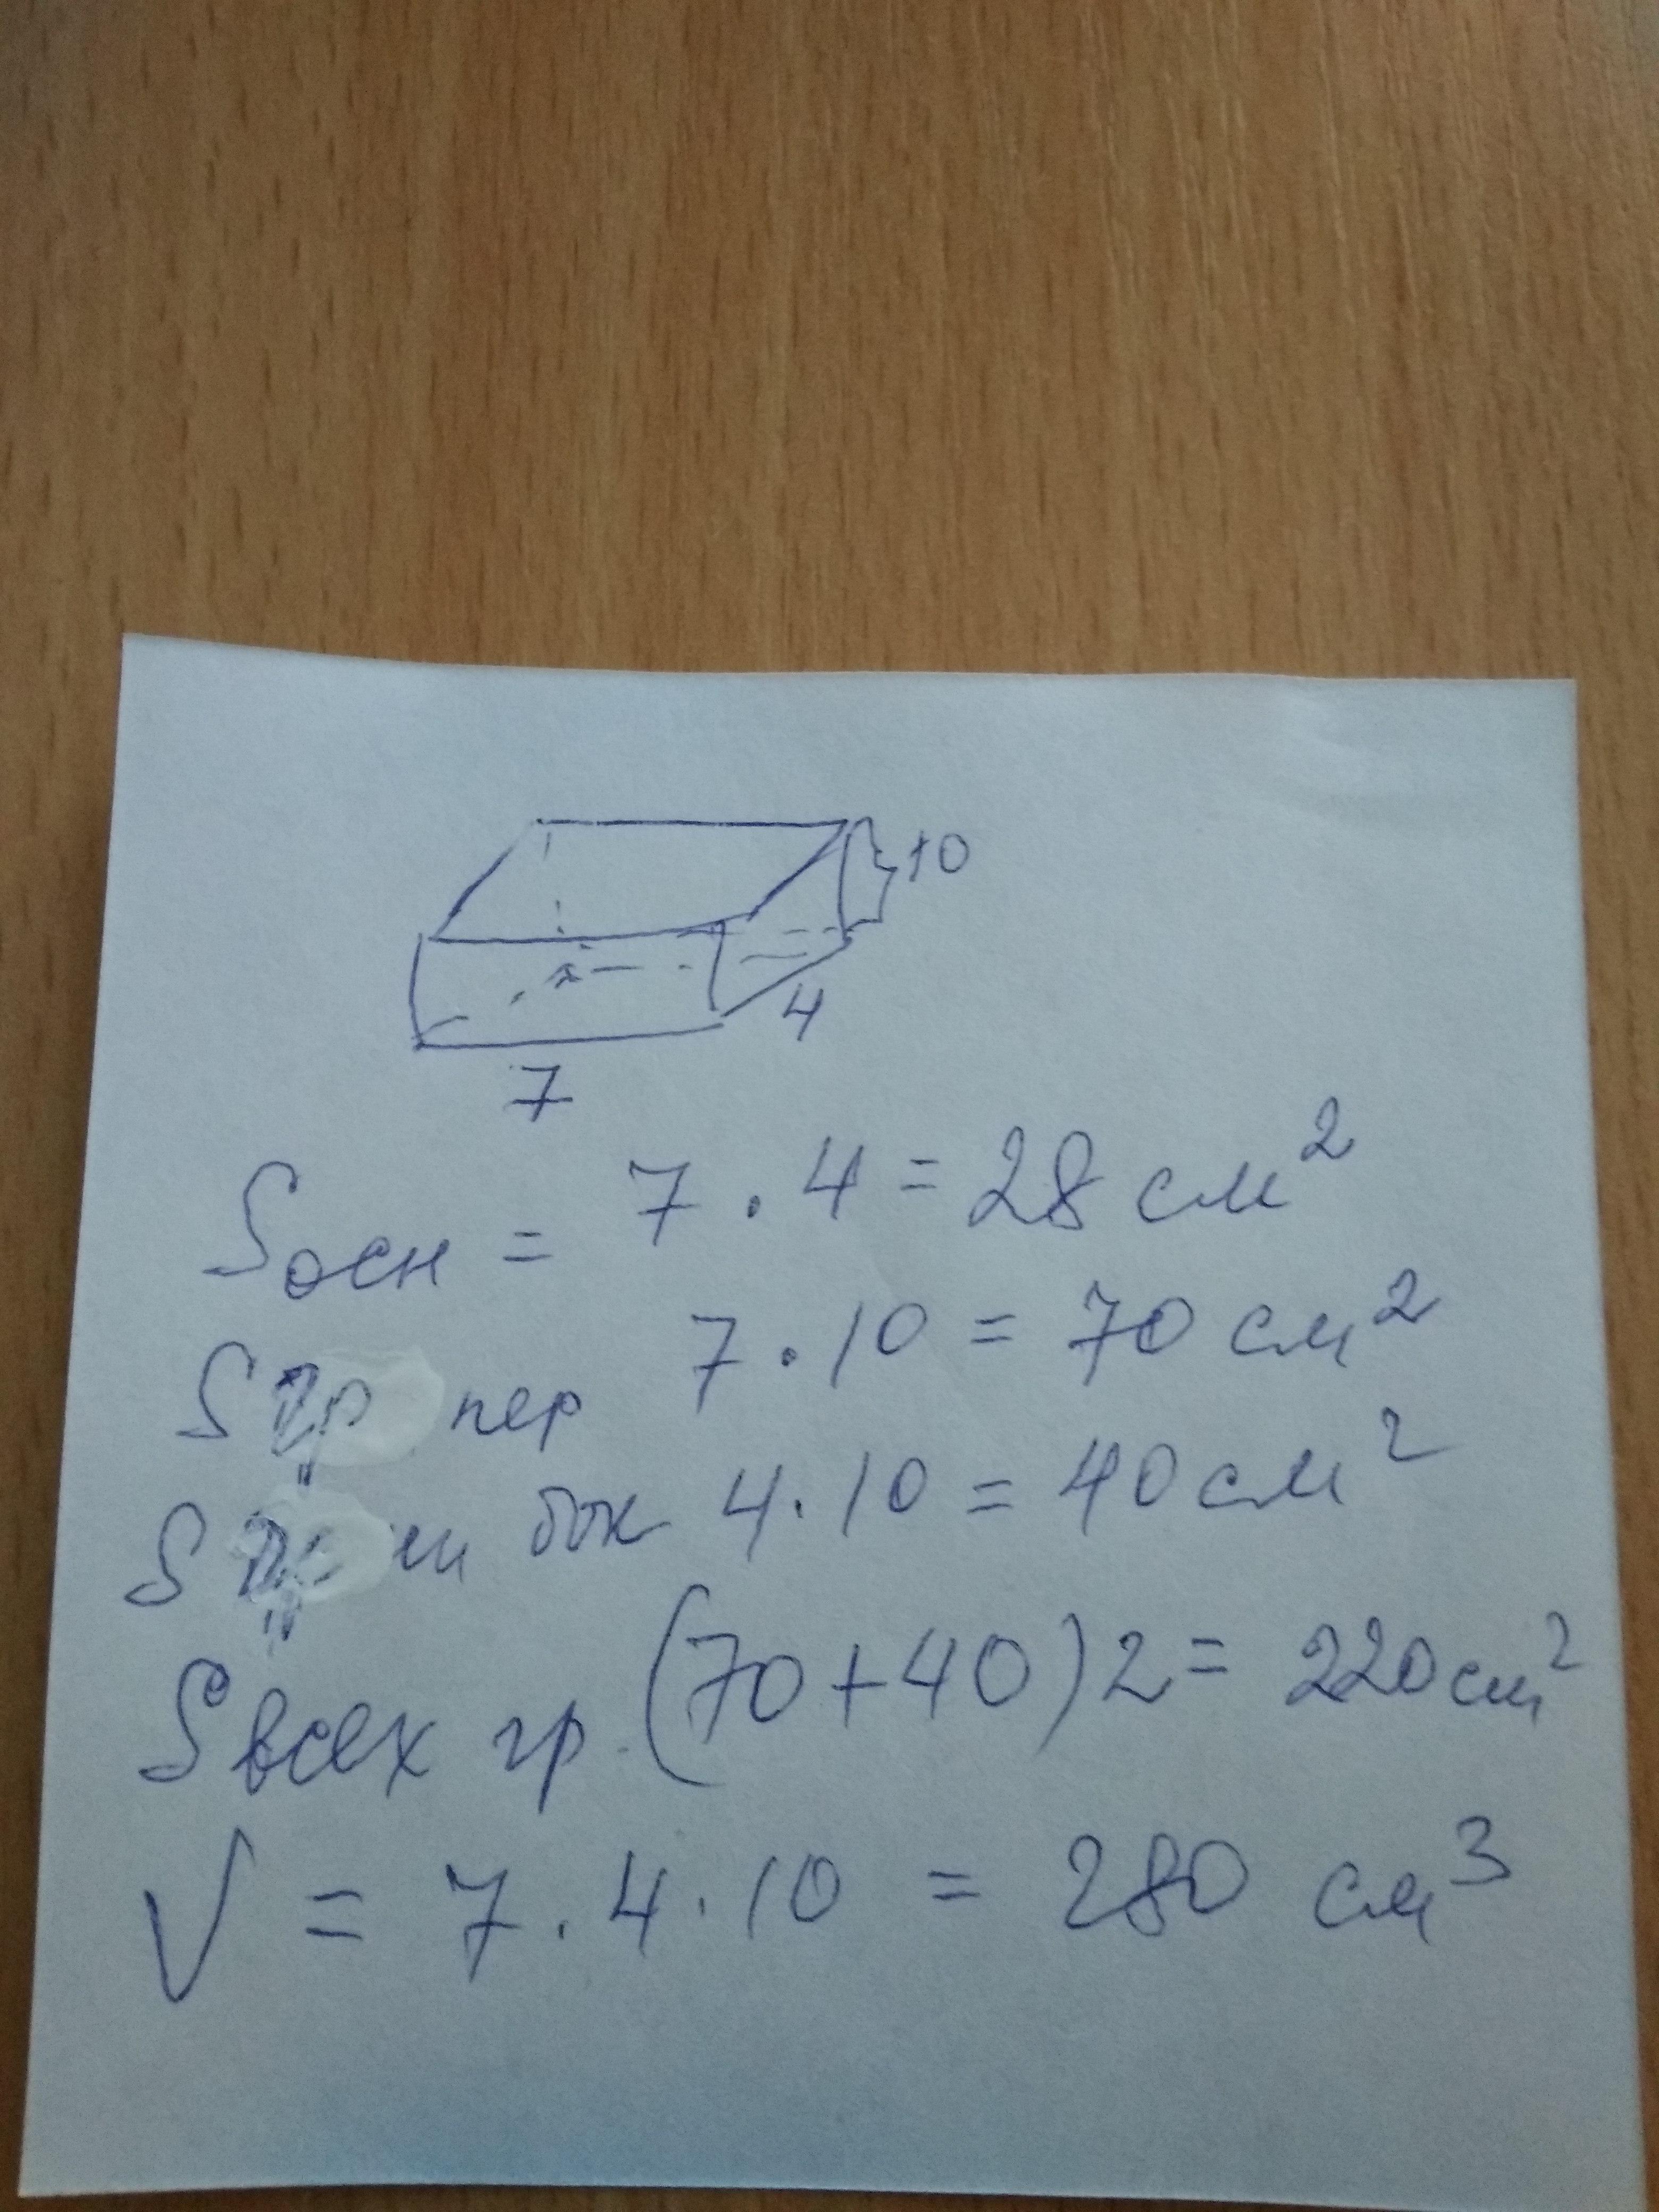 10
4
7
Sосн = 7 . 4 = 28 см²
S гр пер 7 . 10 = 70 см²
S бок 4 . 10 = 40 см²
Sвсех гр. (70+40)2 = 220 см²
V = 7 . 4 . 10 = 280 см³